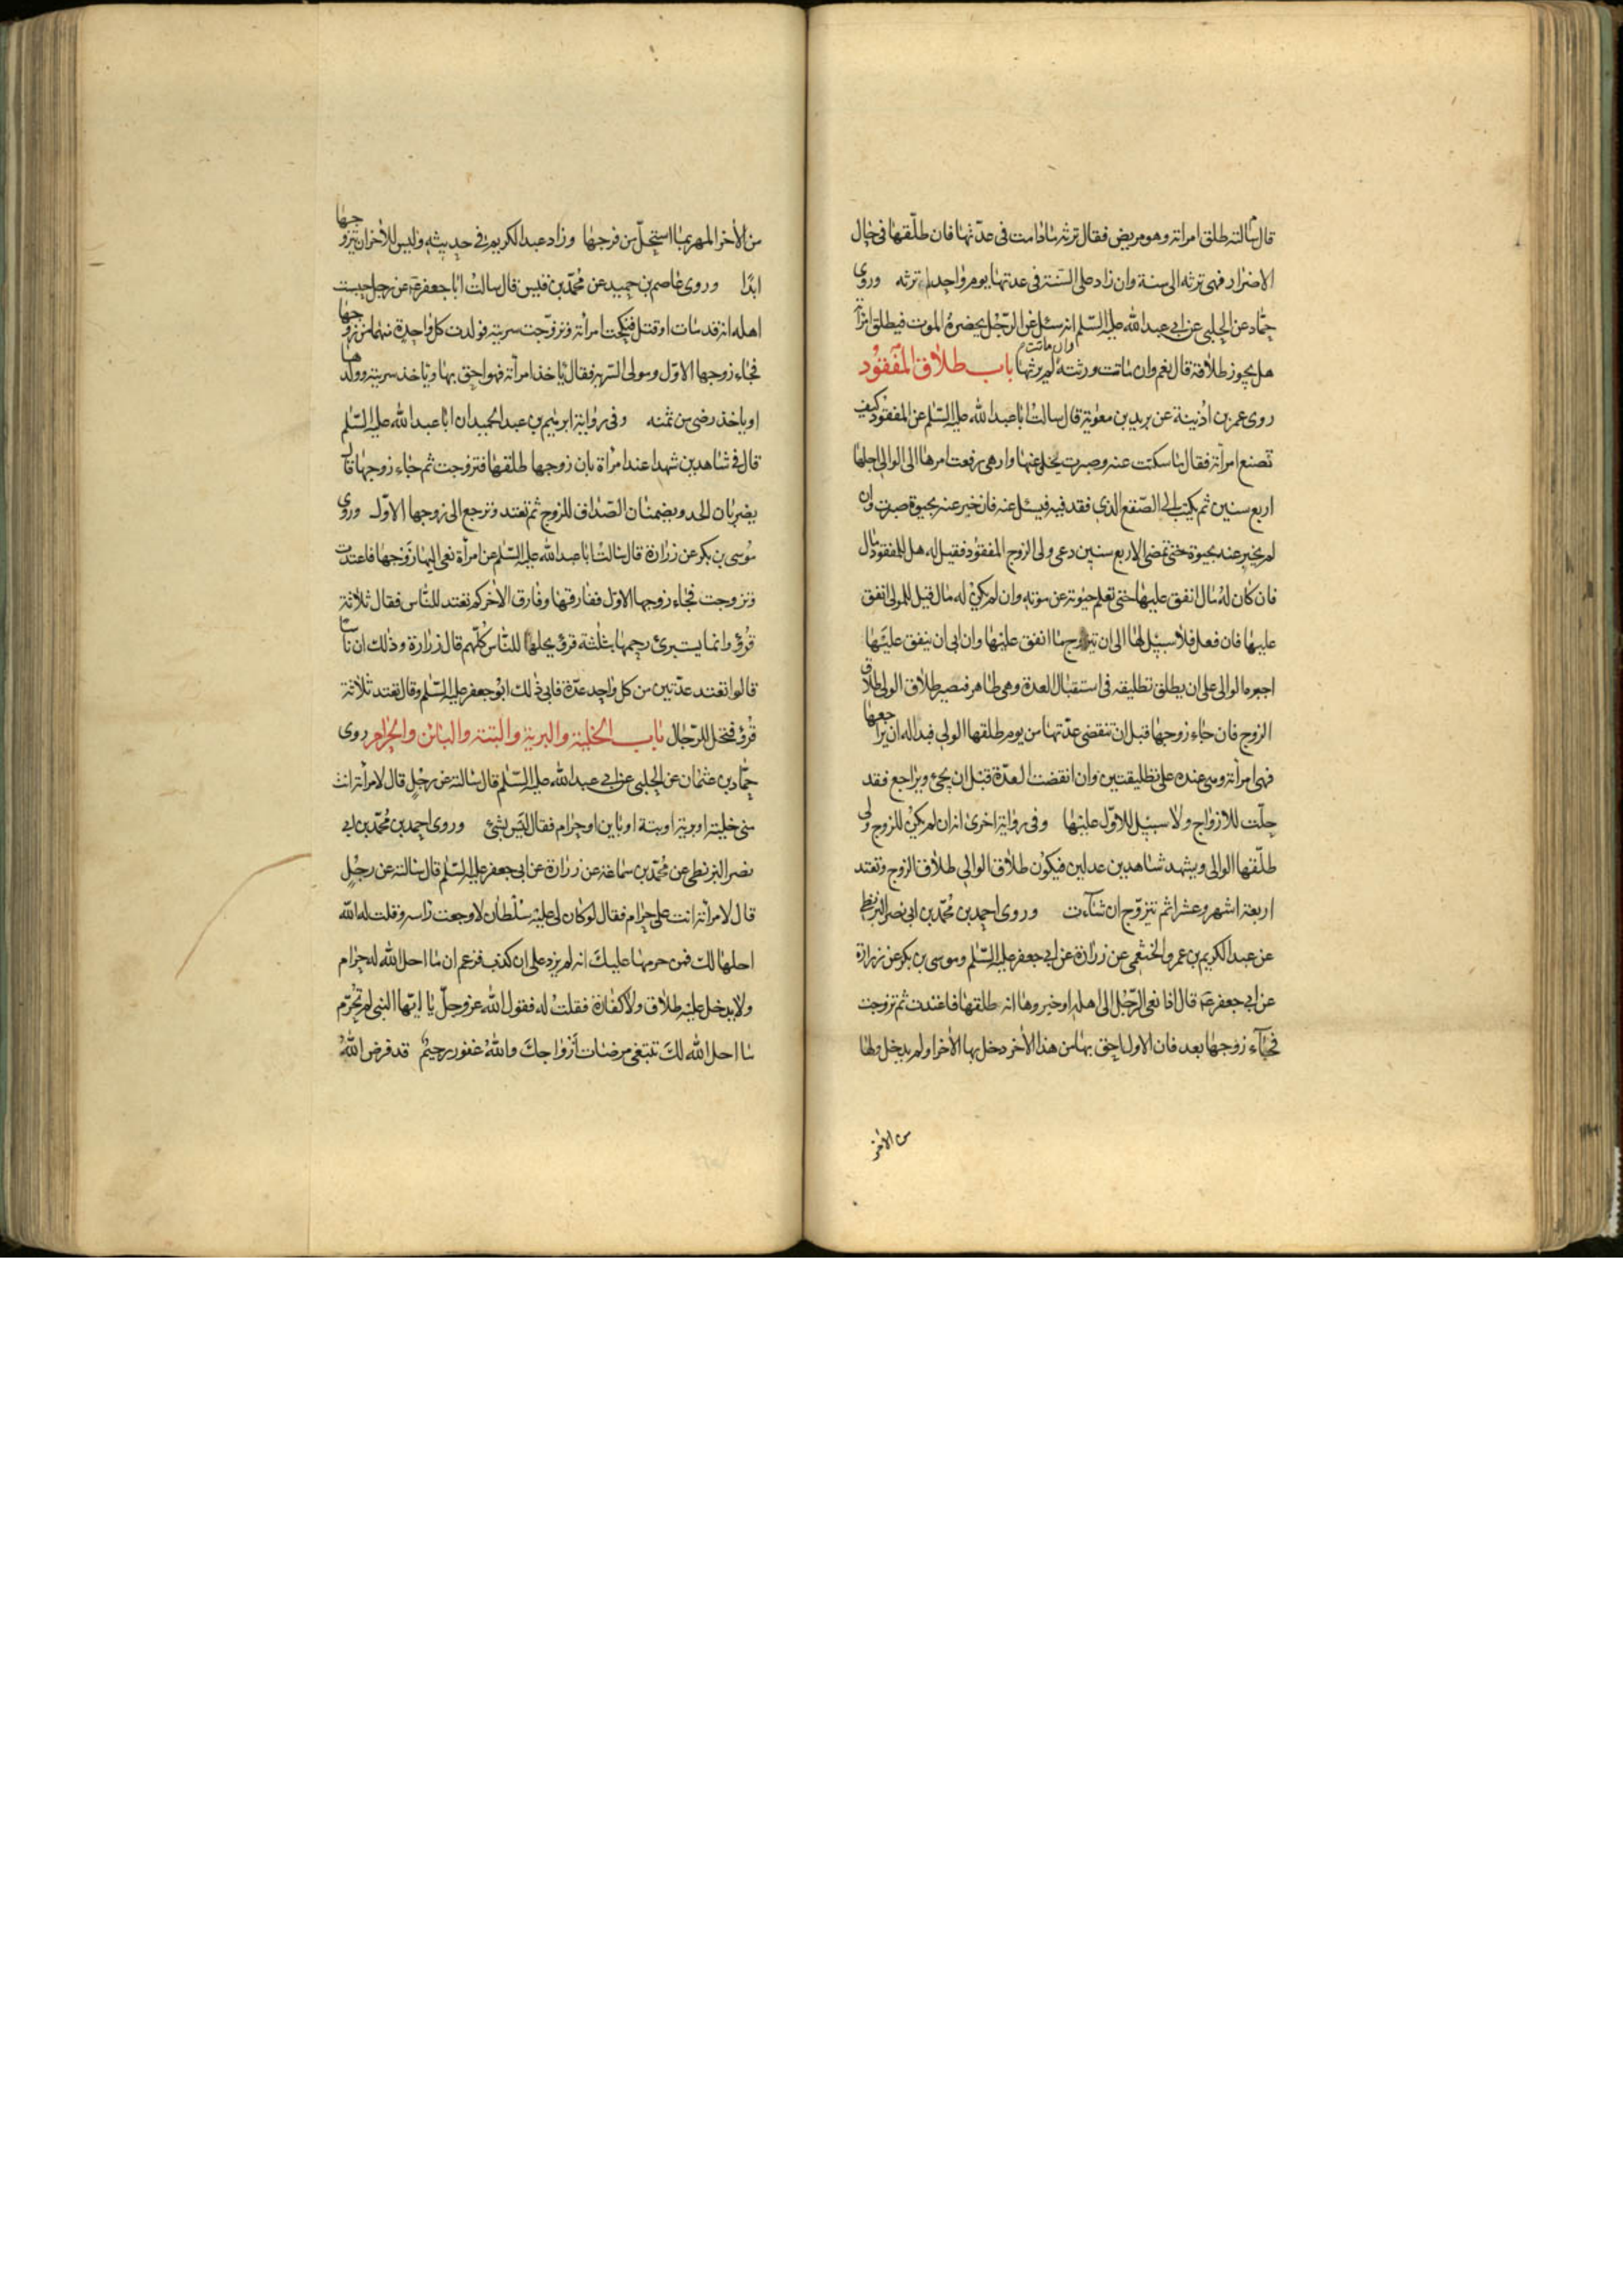 قال سالته طلق امراته وهو مريض فقال ترثه مادامت فى عدّتها فان طلّقها فى حال
الاضرار فهى ترثه الى سنة وان زاد على السّنة فى عدتها يوم واحد لم ترثه وروى
حمّاد عن الحلبى عن ابى عبد الله عليه السّلم انه سئل عن الرّجل يحضره الموت فيطلق امراته
هل يجوز طلاقة قال نعم وان ماتت ورثته وان ماتت لم يرثها باب طلاق المفقود
روى عمر بن اذينة عن بريد بن معوية قال سالت ابا عبد الله عليه السّلم عن المفقود كيف
تصنع امراته فقال ما سكتت عنه وصبرت يخلى عنها وان هى رفعت امرها الى الوالى اجلها
اربع سنين ثم يكتب الى الصّقع الذى فقد فيه فيسئل عنه فان خبر عنه بحيوة صبرت وان
لم يخبر عنه بحيوة حتى تمضى الاربع سنين دعى ولى الزوج المفقود فقيل له هل للمفقود مال
فان كان له مال انفق عليها حتى تعلم حيوته من موته وان لم يكن له مال قيل للولى انفق
عليها فان فعل فلا سبيل لها الى ان تتزوج ما انفق عليها وان ابى ان ينفق عليها
اجبره الوالى على ان يطلق تطليقه فى استقبال العدة وهى طاهر فيصير طلاق الولى طلاق
الزوج فان جاء زوجها قبل ان تنقضى عدّتها من يوم طلقها الولى فبدا له ان يراجعها
فهى امراته وهى عنده على تطليقتين وان انقضت العدّة قبل ان يجئ ويراجع فقد
حلّت للازواج ولا سبيل للاوّل عليها وفى رواية اخرى انه ان لم يكن للزوج ولى
طلّقها الوالى ويشهد شاهدين عدلين فيكون طلاق الوالى طلاق الزوج وتعتد
اربعة اشهر وعشرا ثم تتزوّج ان شاءت وروى احمد بن محمّد بن ابى نصر البزنطى
عن عبد الكريم بن عمرو الخثعمى عن زرارة عن ابى جعفر عليه السّلم وموسى بن بكر عن زرارة
عن ابى جعفر ع قال اذا نعى الرّجل الى اهله او خبروها انه طلقها فاعتدت ثم تزوجت
فجاء زوجها بعد فان الاول احق بها من هذا الاخر دخل بها الاخر او لم يدخل ولها
من الاخر
من الاخر المهر بما استحلّ من فرجها وزاد عبد الكريم فى حديثه وليس للاخر ان يتزوجها
ابدًا وروى عاصم بن حميد عن محمّد بن قيس قال سالت ابا جعفر ع عن رجل حسبت
اهله انه قد مات او قتل فنكحت امراته وتزوّجت سريته فولدت كل واحدة منهما من زوجها
فجاء زوجها الاوّل ومولى السّرية فقال ياخذ امراته فهو احق بها وياخذ سريته وولدها
او ياخذ رضى من ثمنه وفى رواية ابرهيم بن عبد الحميد ان ابا عبد الله عليه السّلم
قال فى شاهدين شهدا عند امراة بان زوجها طلقها فتزوجت ثم جاء زوجها قال
يضربان الحد ويضمنان الصّداق للزوج ثم تعتد وترجع الى زوجها الاوّل وروى
موسى بن بكر عن زرارة قال سالت ابا عبد الله عليه السّلم عن امراة نعى اليها زوجها فاعتدت
وتزوجت فجاء زوجها الاول ففارقها وفارق الاخر كم تعتد للنّاس فقال ثلاثة
قرؤ وانما يستبرئ رحمها بثلثة قرؤ يحلها للنّاس كلّهم قال زرارة وذلك ان ناسا
قالوا تعتد عدّتين من كل واحد عدّة فابى ذلك ابو جعفر عليه السّلم وقال تعتد ثلاثة
قرؤ فتحل للرّجال باب الخلية والبرية والبتة والبائن والحرام روى
حمّاد بن عثمان عن الحلبى عن ابى عبد الله عليه السّلم قال سالته عن رجل قال لامراته انت
منى خلية او برية او بتة او باين او حرام فقال ليس بشئ وروى احمد بن محمّد بن ابى
نصر البزنطى عن محمّد بن سماعة عن زرارة عن ابى جعفر عليه السّلم قال سالته عن رجل
قال لامراته انت على حرام فقال لو كان لى عليه سلطان لاوجعت راسه وقلت له الله
احلها لك فمن حرمها عليك انه لم يزد على ان كذب فزعم ان ما احل الله له حرام
ولا يدخل عليه طلاق ولا كفارة فقلت له فقول الله عز وجلّ يا ايّها النبى لم تحرّم
ما احل الله لك تبتغى مرضات ازواجك والله غفور رحيم قد فرض الله